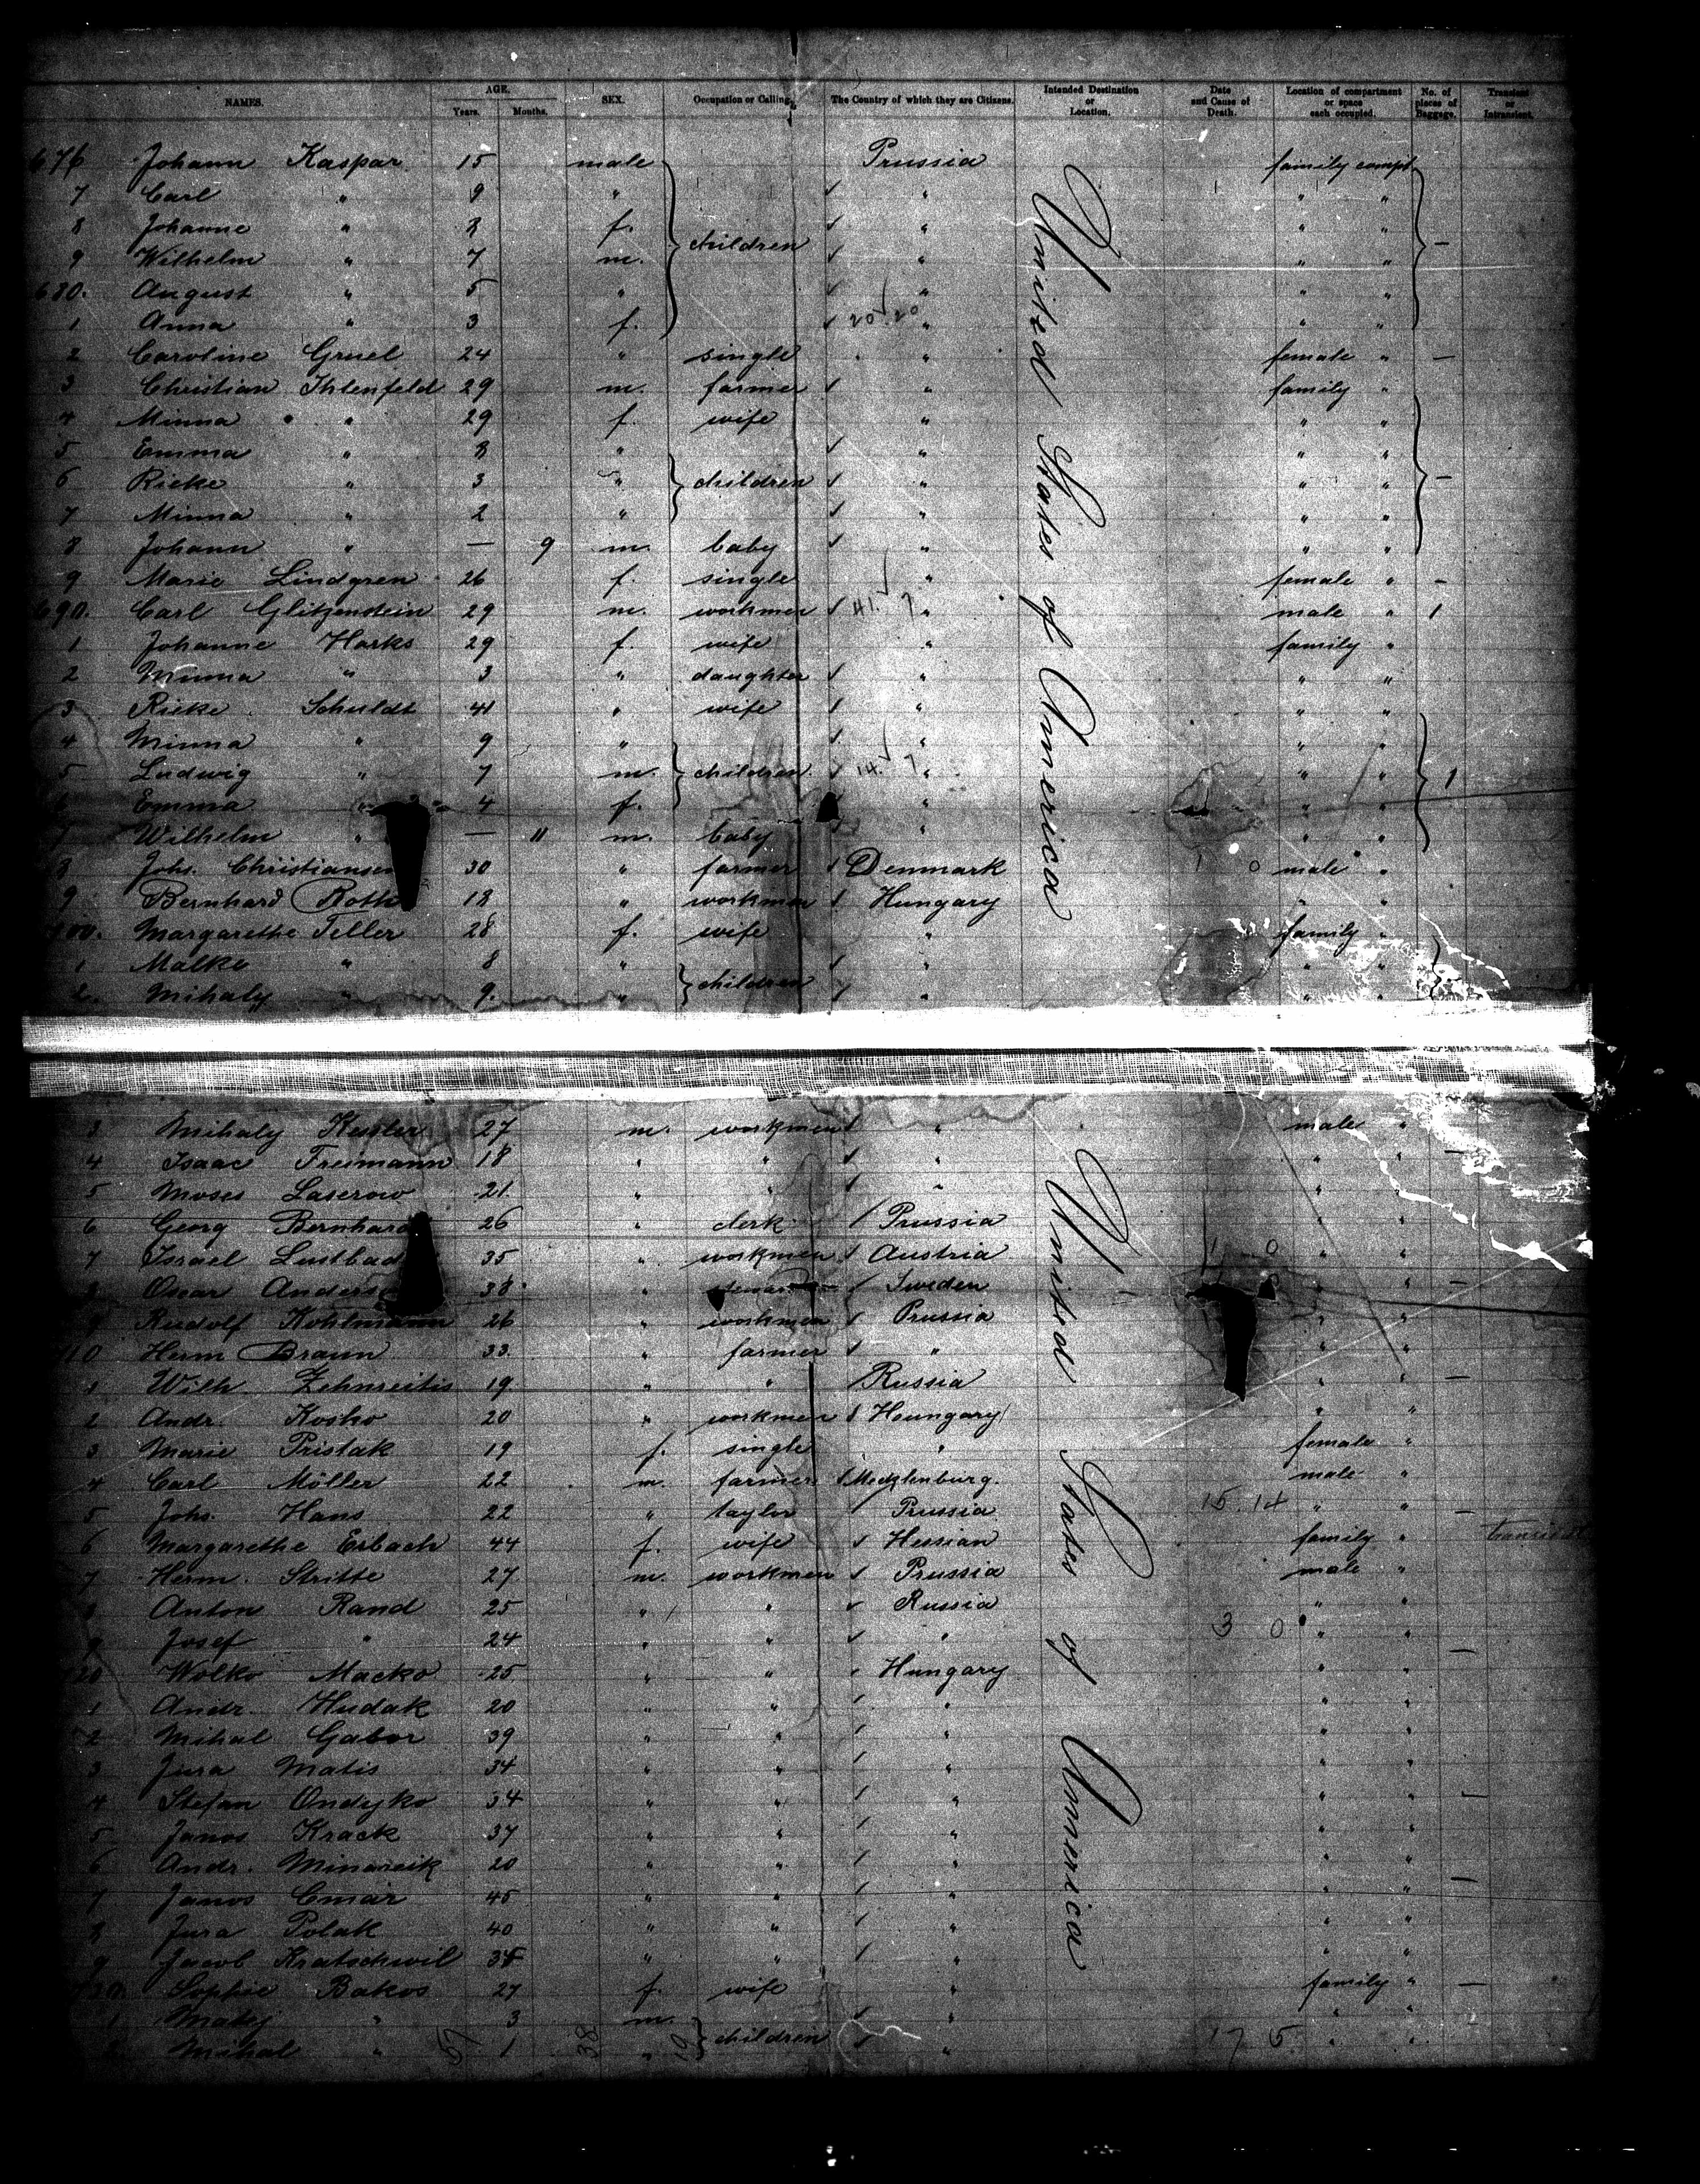 NAMES. AGE. Years. Months. SEX. Occupation or Calling. The Country of which they are Citizens. Intended Destination or Location. Date and Cause of Death. Location of compartment or space each occupied. No. of pieces of Baggage. Transient or Intransient.
676 Johann Kaspar 15 male Prussia family compt
7 Carl " 9 " " " "
8 Johanne " 8 f. " " "
9 Wilhelm " 7 m. children " " " —
680. August " 5 " " " "
1 Anna " 3 f. 20 20 " " "
2 Caroline Gruel 24 " single " female " —
3 Christian Ihlenfeld 29 m. farmer " family "
4 Minna " 29 f. wife " " "
5 Emma " 8 " " " "
6 Rieke " 3 " children " " " —
7 Minna " 2 " " " "
8 Johann " — 9 m. baby " " "
9 Marie Lindgren 26 f. single " female " —
690. Carl Glitzenstein 29 m. workmen 41. 7 " male " 1
1 Johanne Harks 29 f. wife " family "
2 Minna " 3 " daughter " " "
3 Rieke Schuldt 41 " wife " " "
4 Minna " 9 " " " "
5 Ludwig " 7 m. children 14. 7 " " " 1
Emma " 4 f. " " "
Wilhelm " — 11 m. baby " " "
8 Johs. Christiansen 30 " farmer Denmark 1 0 male "
9 Bernhard Roth 18 " workmen Hungary " "
700. Margarethe Teller 28 f. wife " family "
1 Malke " 8 " " " "
2. Mihaly " 9. " children " " "
United States of America
3 Mihaly Kesler 27 m. workmen " male "
4 Isaac Freimann 18 " " " " " —
5 Moses Laserow 21. " " " "
6 Georg Bernhard 26 " clerk Prussia " "
7 Israel Lustbad 35 " workmen Austria 1 0 " "
8 Oscar Anders 38 " Sweden " —
9 Rudolf Kohlmann 26 " workmen Prussia " "
710 Herm Braun 33. " farmer " " "
1 Wilh. Zehnreitis 19 " " Russia " " —
2 Andr. Kosko 20 " workmen Hungary " "
3 Marie Pristak 19 f. single " female "
4 Carl Möller 22 m. farmer Mecklenburg. male "
5 Johs. Hans 22 " taylor Prussia 15. 14 " " —
6 Margarethe Esbach 44 f. wife Hessian family "
7 Herm. Stritte 27 m. workmen Prussia male "
8 Anton Rand 25 " " Russia " "
9 Josef " 24 " " " 3 0 " " —
720 Wolko Macko 25 " " Hungary " "
1 Andr. Hudak 20 " " " " "
2 Mihal Gabor 39 " " " " "
3 Jura Matis 34 " " " " "
4 Stefan Ondyko 34 " " " " " —
5 Janos Krack 37 " " " " "
6 Andr. Minarcik 20 " " " " "
7 Janos Cmar 45 " " " " " —
8 Jura Polak 40 " " " " "
9 Jacob Kratschwil 34 " " " " "
730. Sophie Bakos 27 f. wife " family " —
1 Matij " 3 m. " " "
2 Mihal " 1 " children " 17 5. " "
57 38 19
United States of America